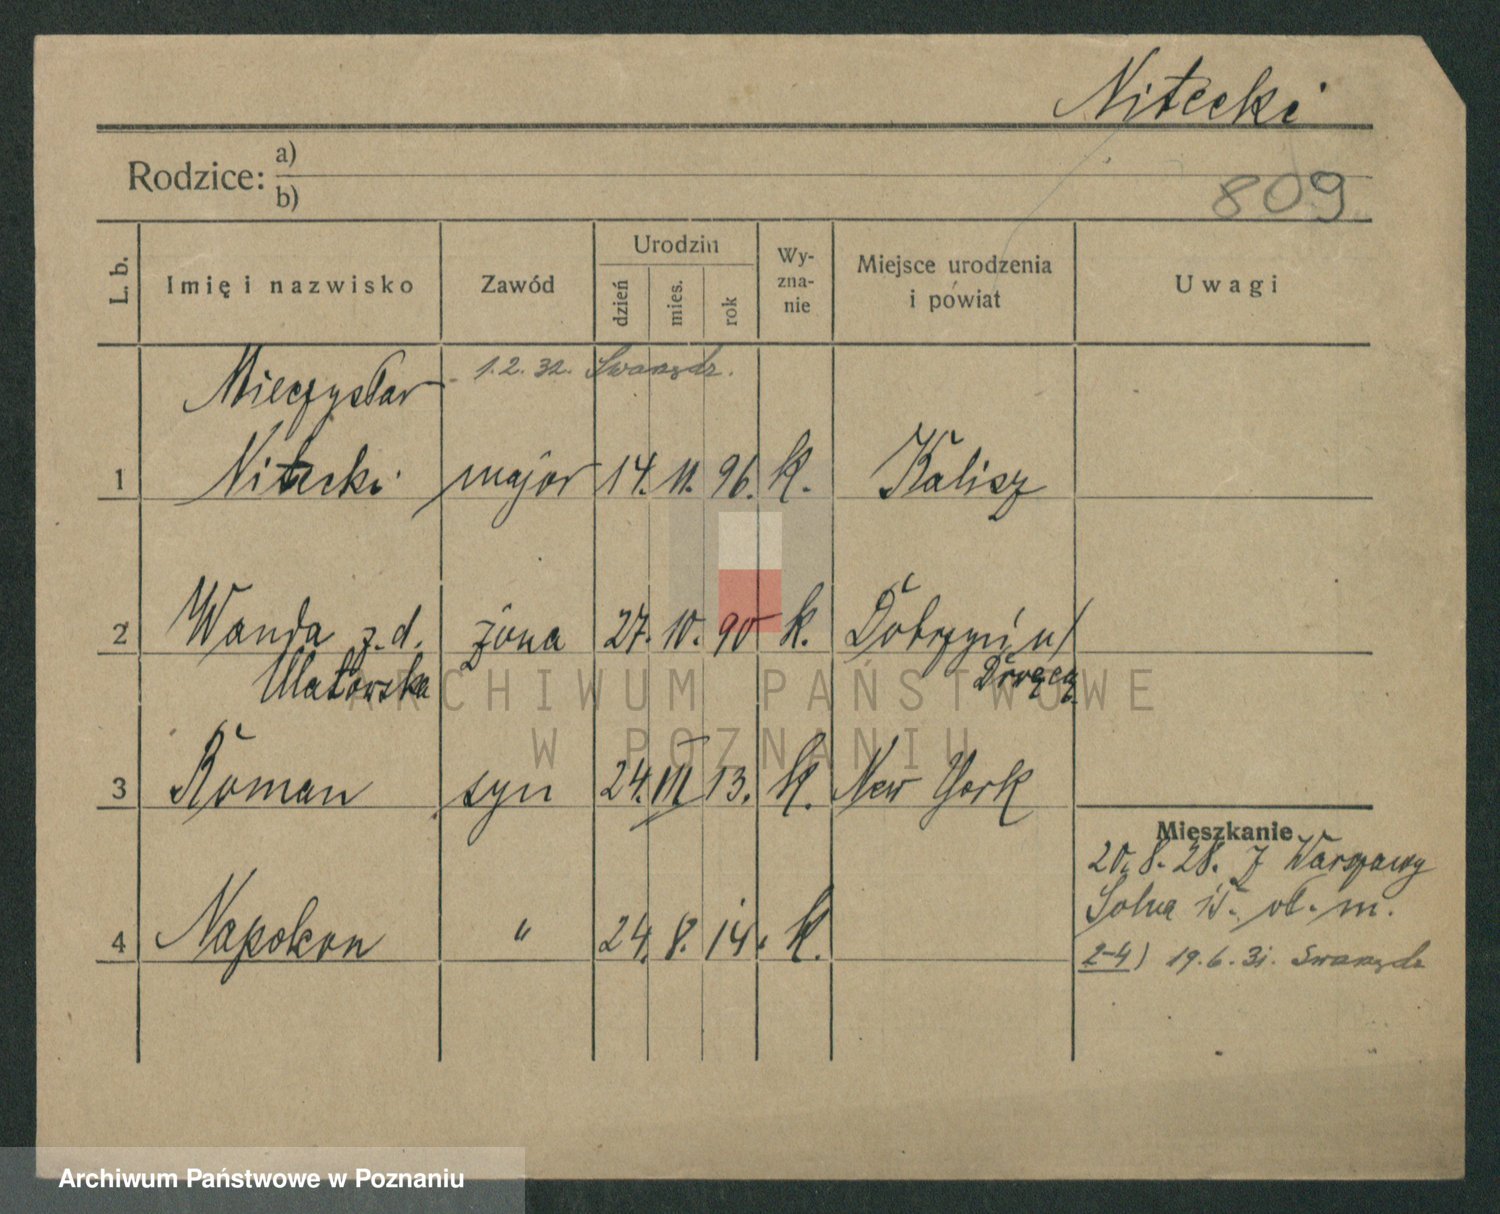 Nitecki
Rodzice: a)
b)
809
L. b. Imię i nazwisko Zawód Urodzin dzień mies. rok Wy-zna-nie Miejsce urodzenia i powiat Uwagi
Mieczysław 1.2.32. Swarzędz.
1 Nitecki major 14. 11. 96. k. Kalisz
2 Wanda z. d. żona 27. 10. 90 k. Dobrzyń n/
Ulatowska Drwęcą
3 Roman syn 24. III 13. k. New York
Mieszkanie
20. 8. 28. z Warszawy
Solna
4 Napoleon " 24. 8. 14. k.
2-4) 19.6.31. Swarzędz
ARCHIWUM PAŃSTWOWE
W POZNANIU
Archiwum Państwowe w Poznaniu